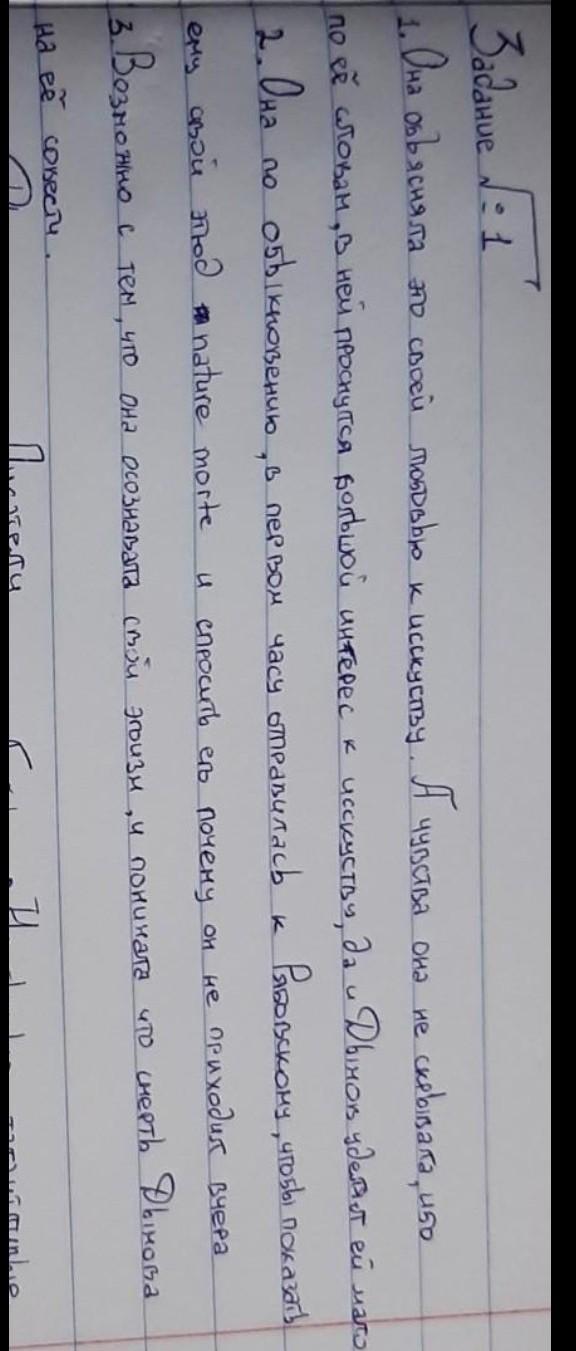 Задание №1
1. Она объясняла это своей любовью к исскуству. А чувства она не скрывала, ибо
по её словам, в ней проснулся большой интерес к исскуству, да и Дымов уделял ей мало
2. Она по обыкновению, в первом часу отправилась к Рябовскому, чтобы показать
ему свой этюд nature morte и спросить его почему он не приходил вчера
3. Возможно с тем, что она осознавала свой эгоизм, и понимала что смерть Дымова
на её совести.